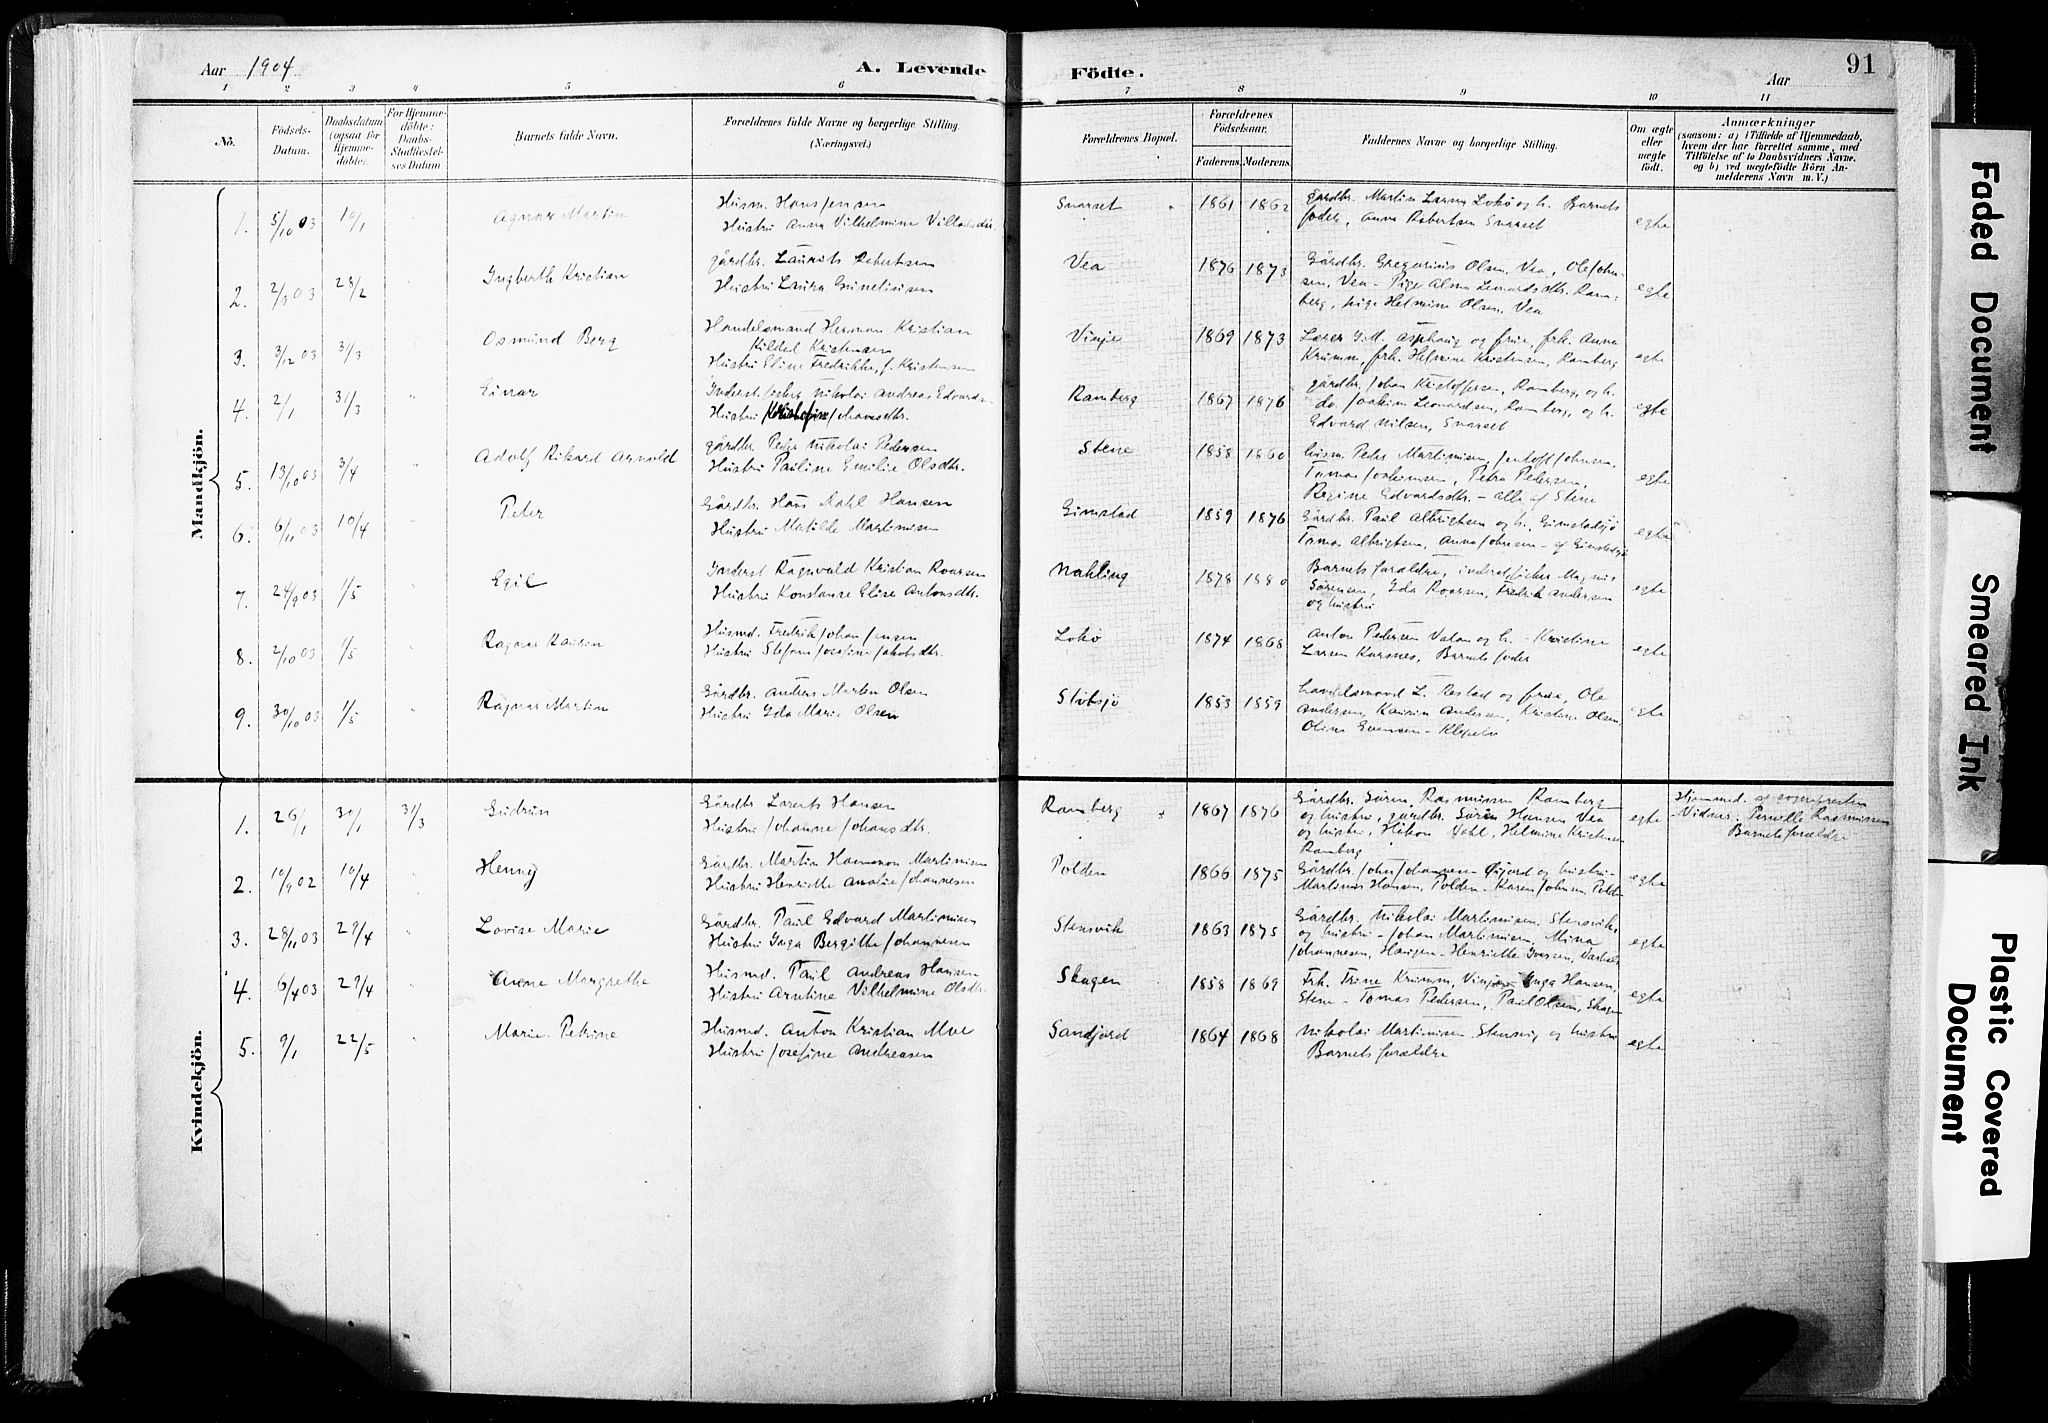 Aar 1904
A. Levende
Födte.
Aar
91
1 2 3 4 5 6 7 8 9 10 11
No.
Födsels-
Datum.
Daabsdatum
(ogsaa for
Hjemme-
döbte).
For Hjemme-
döbte:
Daabs-
Stadfæstel-
ses Datum
Barnets fulde Navn.
Forældrenes fulde Navne og borgerlige Stilling
(Næringsvei.)
Forældrenes Bopæl.
Forældrenes
Födselsaar.
Faderens. Moderens.
Faddernes Navne og borgerlige Stilling.
Om ægte
eller
uægte
födt.
Anmærkninger
(saasom: a) i Tilfælde af Hjemmedaab,
hvem der har forrettet samme, med
Tilföielse af to Daabsvidners Navne,
og b) ved uægtefödte Börn An-
melderens Navn m. V.)
Mandkjön.
1. 5/10 03 10/1 Agnar Martin
Husm. Hans Jensen
Hustru Anna Vilhelmine Villadsdtr.
Svarset 1861 1862
gårdbr. Martin Larsen Lokø og h. Barnets
fader, Anna Robertsen Svarset
egte
2. 2/9 03 28/2 Ingberth Kristian
gårdbr. Laurits Robertsen
Hustru Laura
Vea 1876 1873
Gårdbr. Gregorius Olsen, Vea, Ole John-
sen, Vea - Pige Alma Leonardsdtr. Ram-
berg, pige Helmine Olsen, Vea
egte
3. 3/12 03 3/3 Osmund Berg
Handelsmand Herman Kristian
Kildal Kristensen
Hustru Eline Fredrikke, f. Kristensen
Vinje 1869 1873
Lærer Asphaug og frue, frk. Anna
Krumm, frk. Helmine Kristensen, Ramberg
egte
4. 2/1 31/3 Einar
Inderst fisker Nikolai Andreas Edvards.
Hustru Johansdtr.
Ramberg 1867 1876
gårdbr. Johan Kristoffersen, Ramberg, og h.
do. Joakim Leonardsen, Ramberg, og h.
Edvard Nilsen, Svarset
egte
5. 13/10 03 3/4 Adolf Rikard Arnold
gårdbr. Peder Nikolai Pedersen
Hustru Pauline Emilie Olsdtr.
Stene 1858 1860
husm. Peter Martinisen, Jentoft Johnsen,
Tomas Joakimsen, Petra Pedersen,
Regine Edvardsdtr. - alle af Stene
egte
6. 6/11 03 10/4 Peter
Gårdbr. Hans Dahl Hansen
Hustru Matilde Martinisen
Gimstad 1859 1876
Gårdbr. Paul Albrigtsen og h., Gimstadsjø
Tomas Albrigtsen, Anna Johnsen - af Gimstadsjø
egte
7. 24/9 03 1/5 Egil
Inderst Ragnvald Kristian Roarsen
Hustru Konstanse Elise Antonsdtr.
Nakling 1878 1880
Barnets forældre, inderst fisker Magnus
Sørensen, Ida Roarsen, Fredrik Andersen
og hustru
egte
8. 2/10 03 1/5 Ragnar Kaurin
Husmd. Fredrik Johan Jensen
Hustru Stefanie Josefine Jakobsdtr.
Lokø 1874 1868
Anton Pedersen Vatan og h. - Kristine
Larsen Karsnes, Barnets fader
egte
9. 30/10 03 1/5 Ragnar Martin
Gårdbr. Anders Marten Olsen
Hustru Ida Marie Olsen
1853 1859
Handelsmand L. Restad og frue, Ole
Andersen, Kaurin Andersen, Kristine Olsen,
Oline Evensen -
egte
Kvindekjön.
1. 26/1 30/1 31/3 Gudrun
Gårdbr. Lorents Hansen
Hustru Johanne Johansdtr.
Ramberg 1867 1876
Gårdbr. Søren Rasmussen Ramberg
og hustru, gårdbr. Søren Hansen Vea
og hustru, Håkon Dahl, Helmine Kristensen
Ramberg
egte
Hjemmed. af sognepresten
Vidner: Pernille Rasmussen
Barnets forældre
2. 10/9 02 10/4 Henny
Gårdbr. Martin Hammon Martinisen
Hustru Henriette Amalie Johannesen
Polden 1866 1875
Gårdbr. John Johannesen og hustru -
Martinus Hansen, Polden - Karen Johnsen, Polden
egte
3. 28/11 03 29/4 Lovise Marie
Gårdbr. Paul Edvard Martinisen
Hustru Inga Bergitte Johannesen
Stensvik 1863 1875
Gårdbr. Nikolai Martinisen, Stensvik,
og hustru - Johan Martinisen, Mina
Johannesen, Haugen - Henriette Iversen,
egte
4. 6/4 03 29/4 Anne Margrethe
Husmd. Paul Andreas Hansen
Hustru Arntine Vilhelmine Olsdtr.
Skagen 1858 1869
Frk. Trine Krumm, Vinje, Inga Hansen,
Stene - Tomas Pedersen, Paul Olsen, Skagen
egte
5. 9/1 22/5 Marie Petrine
Husmd. Anton Kristian Moe
Hustru Josefine Andreasen
Sandfjord 1864 1868
Nikolai Martinisen Stensvig og hustru
Barnets forældre
egte
Faded Document
Smeared Ink
Plastic Covered
Document